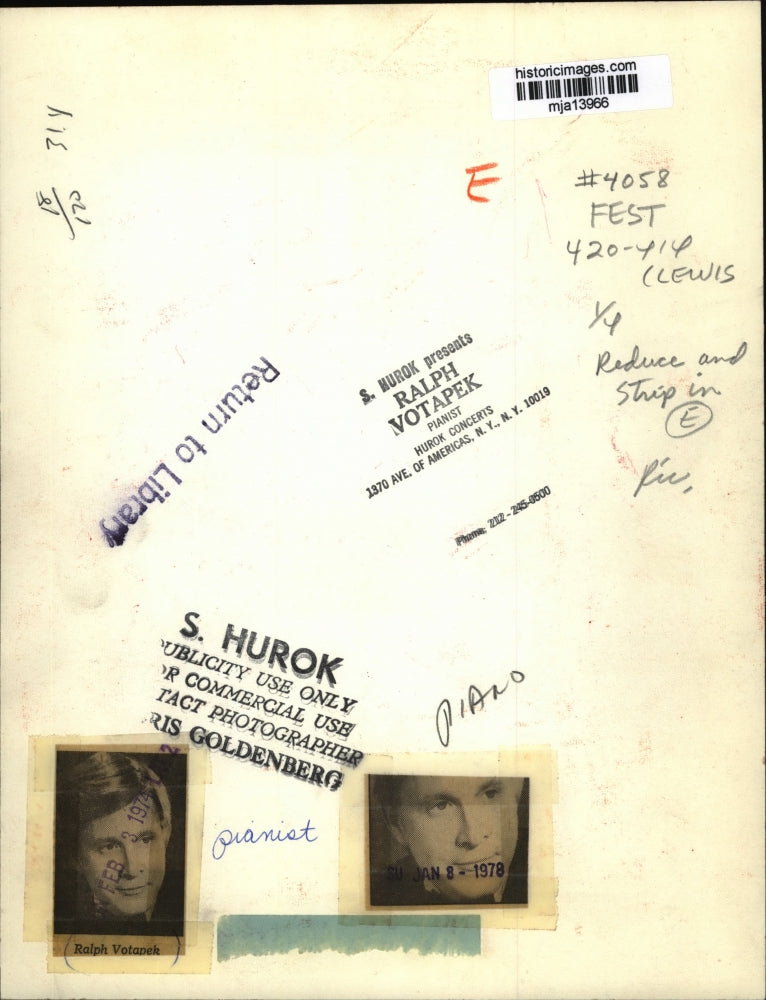 historicimages.com
mja13966
314
18/170
E
#4058
FEST
420-414
(LEWIS
1/4
Reduce and
Strip in
E
Return to Library
S. HUROK presents
RALPH
VOTAPEK
PIANIST
HUROK CONCERTS
1370 AVE. OF AMERICAS, N. Y., N. Y. 10019
Phone: 212-245-0500
S. HUROK
PUBLICITY USE ONLY
OR COMMERCIAL USE
TACT PHOTOGRAPHER
RIS GOLDENBERG
PIANO
FEB 3 1974
pianist
SU JAN 8 - 1978
(Ralph Votapek)